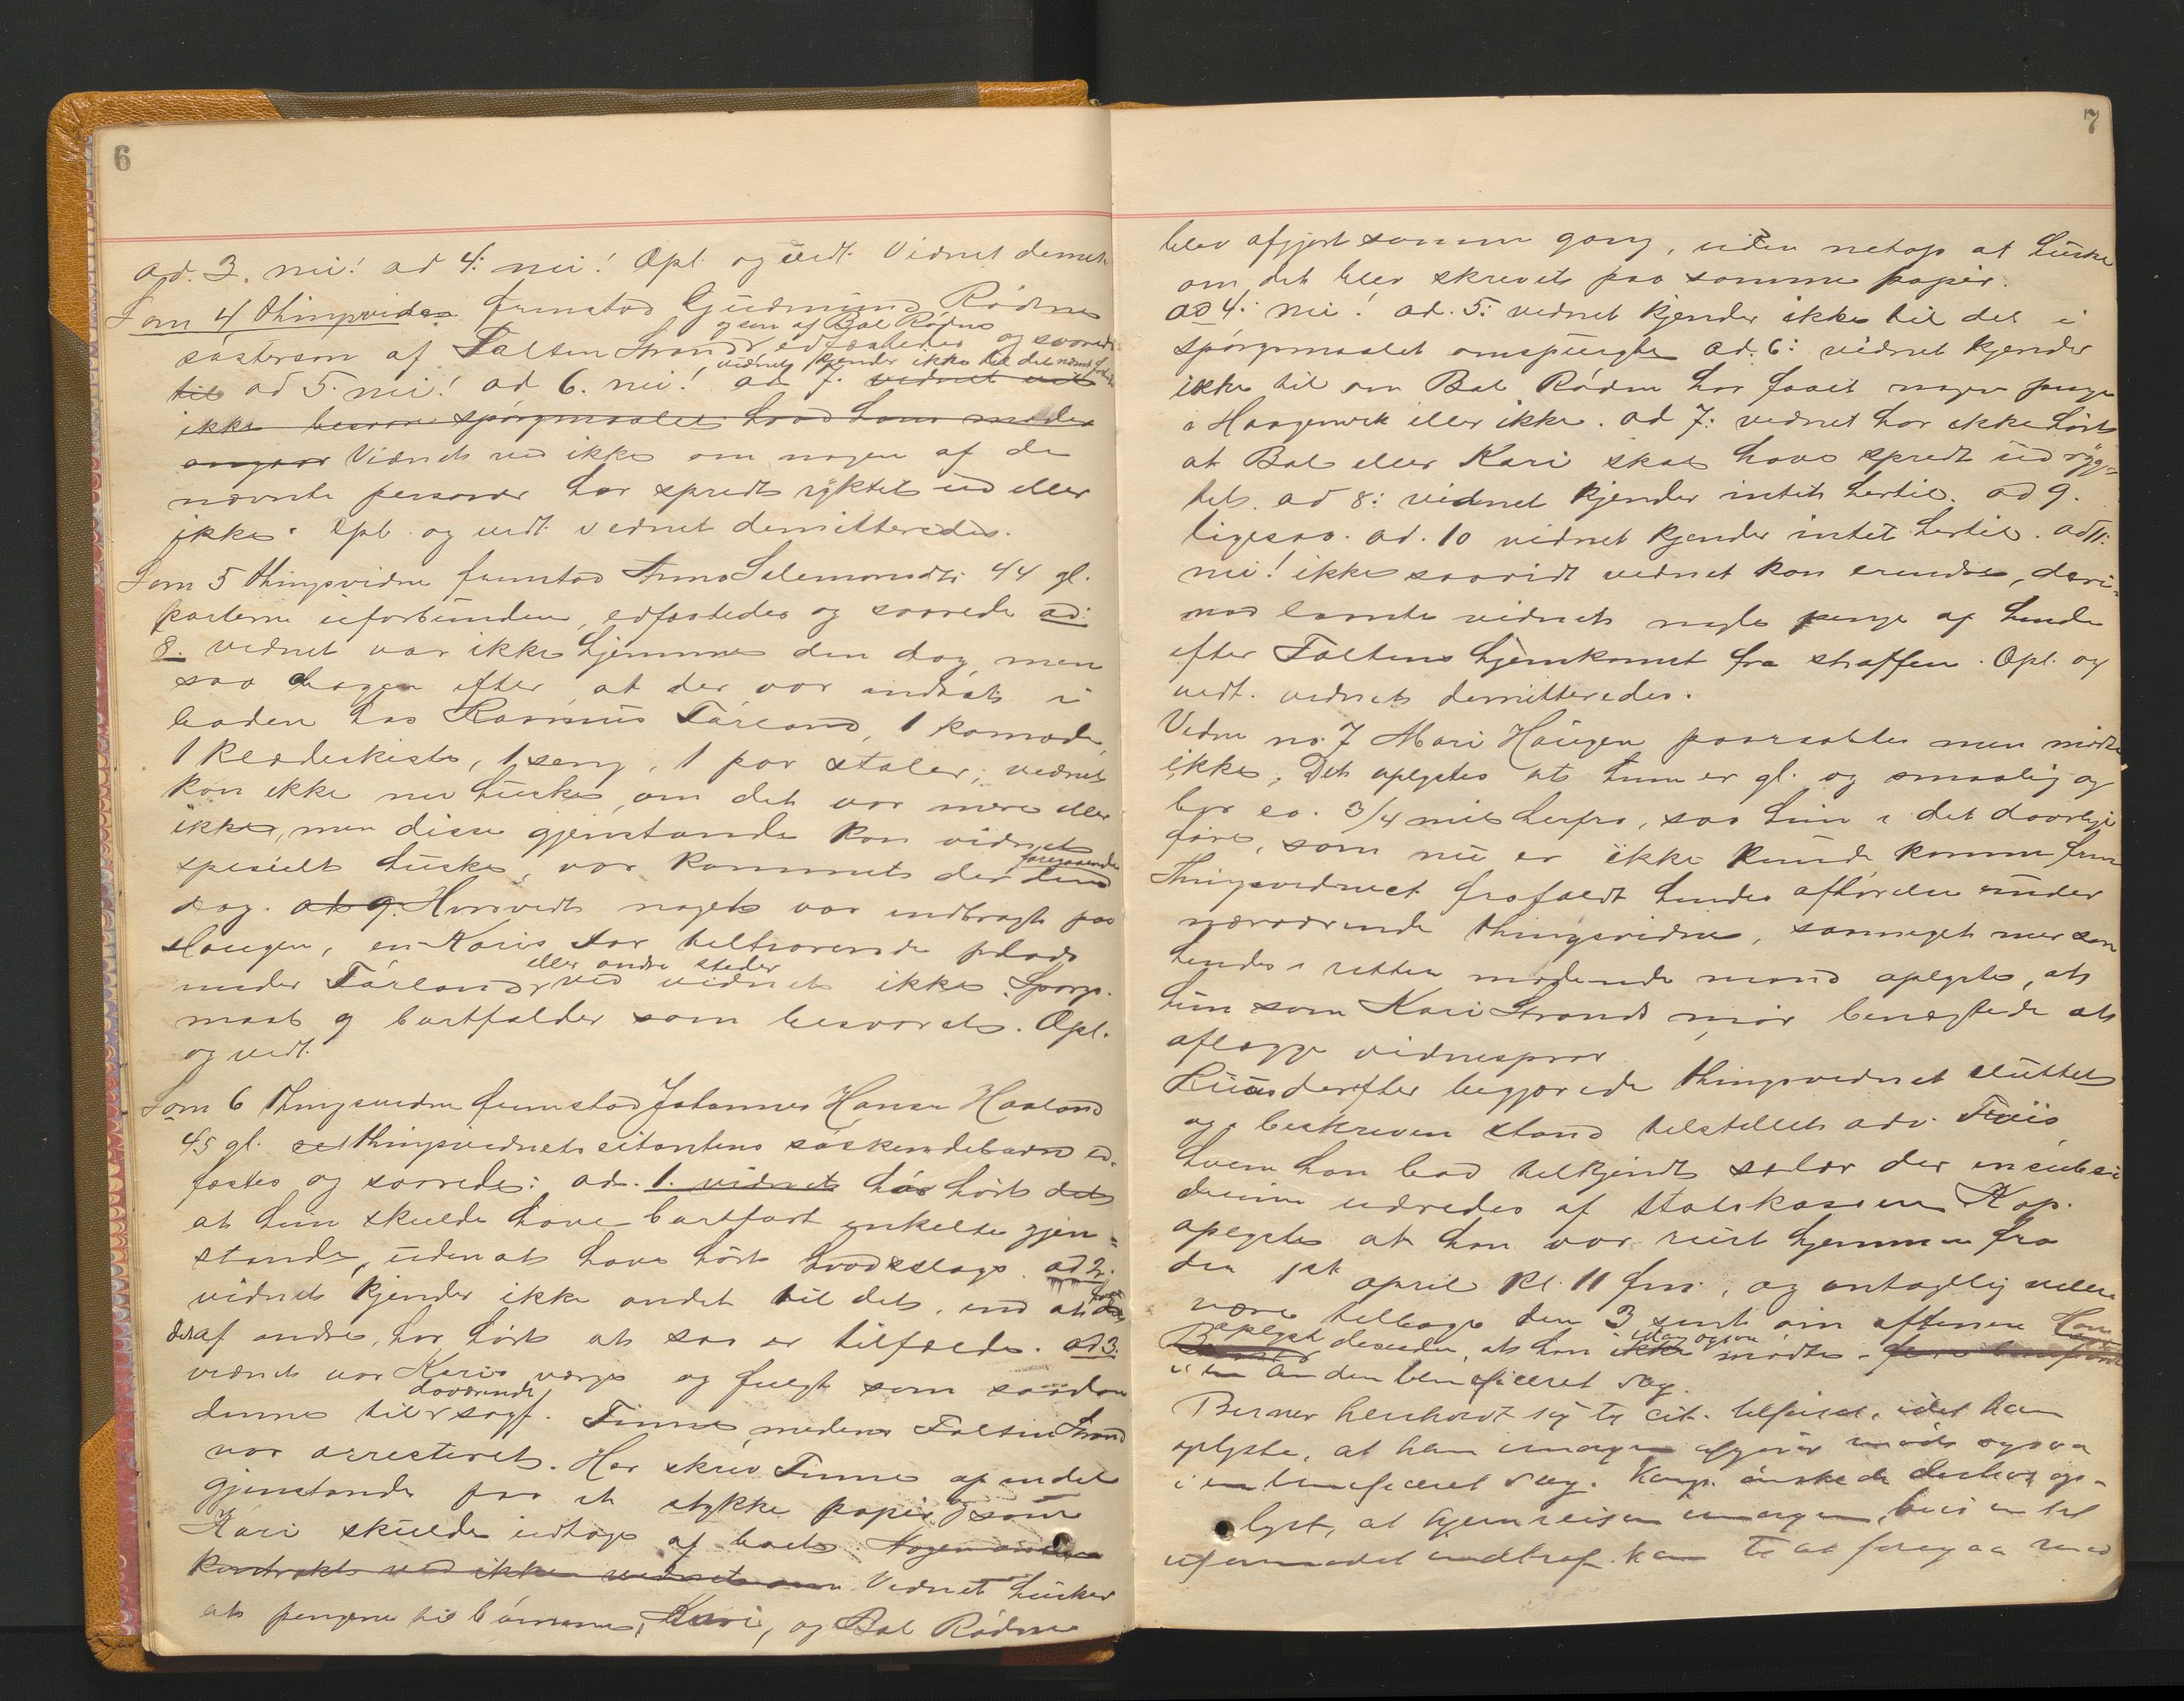 6
ad. 3. nei! ad 4: nei! Opl. og vedt. Vidnet demit.
Som 4 thingsvidne fremstod Gudmund Rödne
og søn af Bal Rödne
sösterson af Falten Strand, edfæstedes og svarede
vidnet kjender ikke til det
til ad 5. nei! ad 6. nei! ad 7. vidnet ved
ikke besvare spörgmaalet hvad hans moder
angaar Vidnet ved ikke om nogen af de
nævnte personer har spredt ryktet ud eller
ikke. Opl. og vedt. vidnet demitteredes.
Som 5 thingsvidne fremstod Anna Salemonsdtr. 44 gl.
parterne uforbunden, edfæstedes og svarede ad:
8. vidnet var ikke hjemme den dag, men
saa dagen efter, at der var indsat i
boden hos Rasmus Tárland, 1 komode,
1 klædeskiste, 1 seng, 1 par stoler; vidnet
kan ikke nu huske, om det var mere eller
ikke, men disse gjenstande kan vidnet
specielt huske, var kommet der
foregaaende
dag. ad 9. Hvorvidt noget var indbragt paa
Haugen, en Karis far tilhørende plads
eller andre steder
under Tárland, ved vidnet ikke. Spørgs-
maal 9 bortfalder som besvaret. Opl.
og vedt.
Som 6 thingsvidne fremstod Johannes Hansen Haaland
45 gl. thingsvidnets citantens söskendebarn ed-
fæstes og svarede: ad. 1. vidnet har hört det
at hun skulde have bortført enkelte gjen-
stande, uden at have hört hvadslags. ad 2.
vidnet kjender ikke andet til det, end at
det af andre, har hört at saa er tilfælde. ad 3.
vidnet var Karis værge og fulgte som saadan
daværende
denne til sagf. Tinne, medens Falten Strand
var arresteret. Her skrev Tinne op endel
gjenstande paa et stykke papir, som
Kari skulde udtage af boet.
kontrakt ved ikke vidnet om Vidnet husker
at pengene til börnene, Kari, og Bal Rödne
7
blev afgjort samme gang, uden netop at huske
om det blev skrevet paa samme papir.
ad 4: nei! ad. 5: vidnet kjender ikke til det i
spörgsmaalet omspurgte ad. 6: vidnet kjender
ikke til om Bal Rödne har faaet nogen penge
i Haagenvik eller ikke. ad 7: vidnet har ikke hört
at Bal eller Kari skal have spredt ud ryg-
tet. ad 8: vidnet kjender intet hertil. ad 9.
ligesaa. ad. 10 vidnet kjender intet hertil. ad 11:
nei! ikke saavidt vidnet kan erindre, deri-
mod laante vidnet nogle penge af hende
efter Faltens hjemkomst fra straffen. Opl. og
vedt. vidnet demitteredes.
Vidne no. 7 Mari Haugen paaraabtes men mödte
ikke. Det oplystes at hun er gl. og smaalig og
bor ca. 3/4 mil herfra, saa hun i det daarlige
före, som nu er ikke kunde komme frem
Thingsvidnet frafaldt hendes afhörelse under
nærværende thingsvidne, saameget mer som
hendes i retten mödende mand oplyste, at
hun som Kari Strands mor benægtede at
aflægge vidnesprov.
Lund derefter begjærede thingsvidnet sluttet
og i beskreven stand tilstillet adv. Friis
hvem han bad tilkjendt salær der in subsi-
dium udredes af statskassen Kap.
oplyste at han var reist hjemme fra
den 1st april kl. 11 fm., og antagelig vilde
være tilbage den 3 sent om aftenen
oplyst desuden, at han idag ogsaa mödte
i en anden beneficeret sag.
Berner henholdt sig til cit. tilförsel, idet han
oplyste, at han imorgen möde ogsaa
i en beneficeret sag. Kap. ønskede derhos op-
lyst, at hjemreisen imorgen, hvis en hel
uformodet indtraf. kan ta at foregaa med